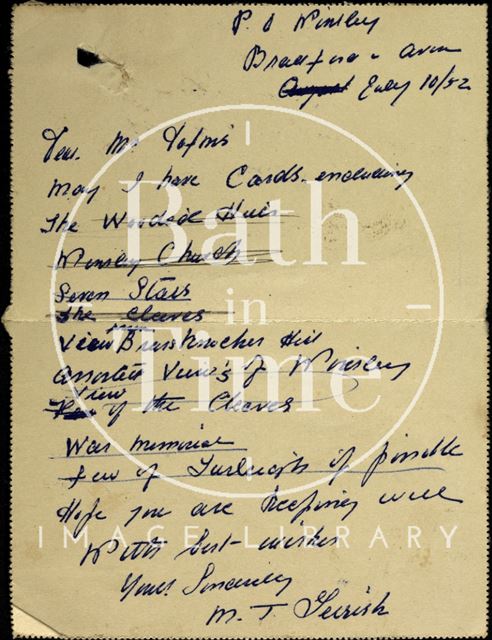 P.O Winsley
Bradford on Avon
August July 10/52
Dear Mr
May I have Cards including
The Wooded Hills
Winsley Church
Seven Stars
The Cleeves
View Brassknocker Hill
assorted Views of Winsley
View of the Cleeves
War memorial
few of Turleigh if possible
Hope you are keeping well
With best wishes
Yours Sincerely
M. T. Gerrish
Bath
in
Time
IMAGE LIBRARY